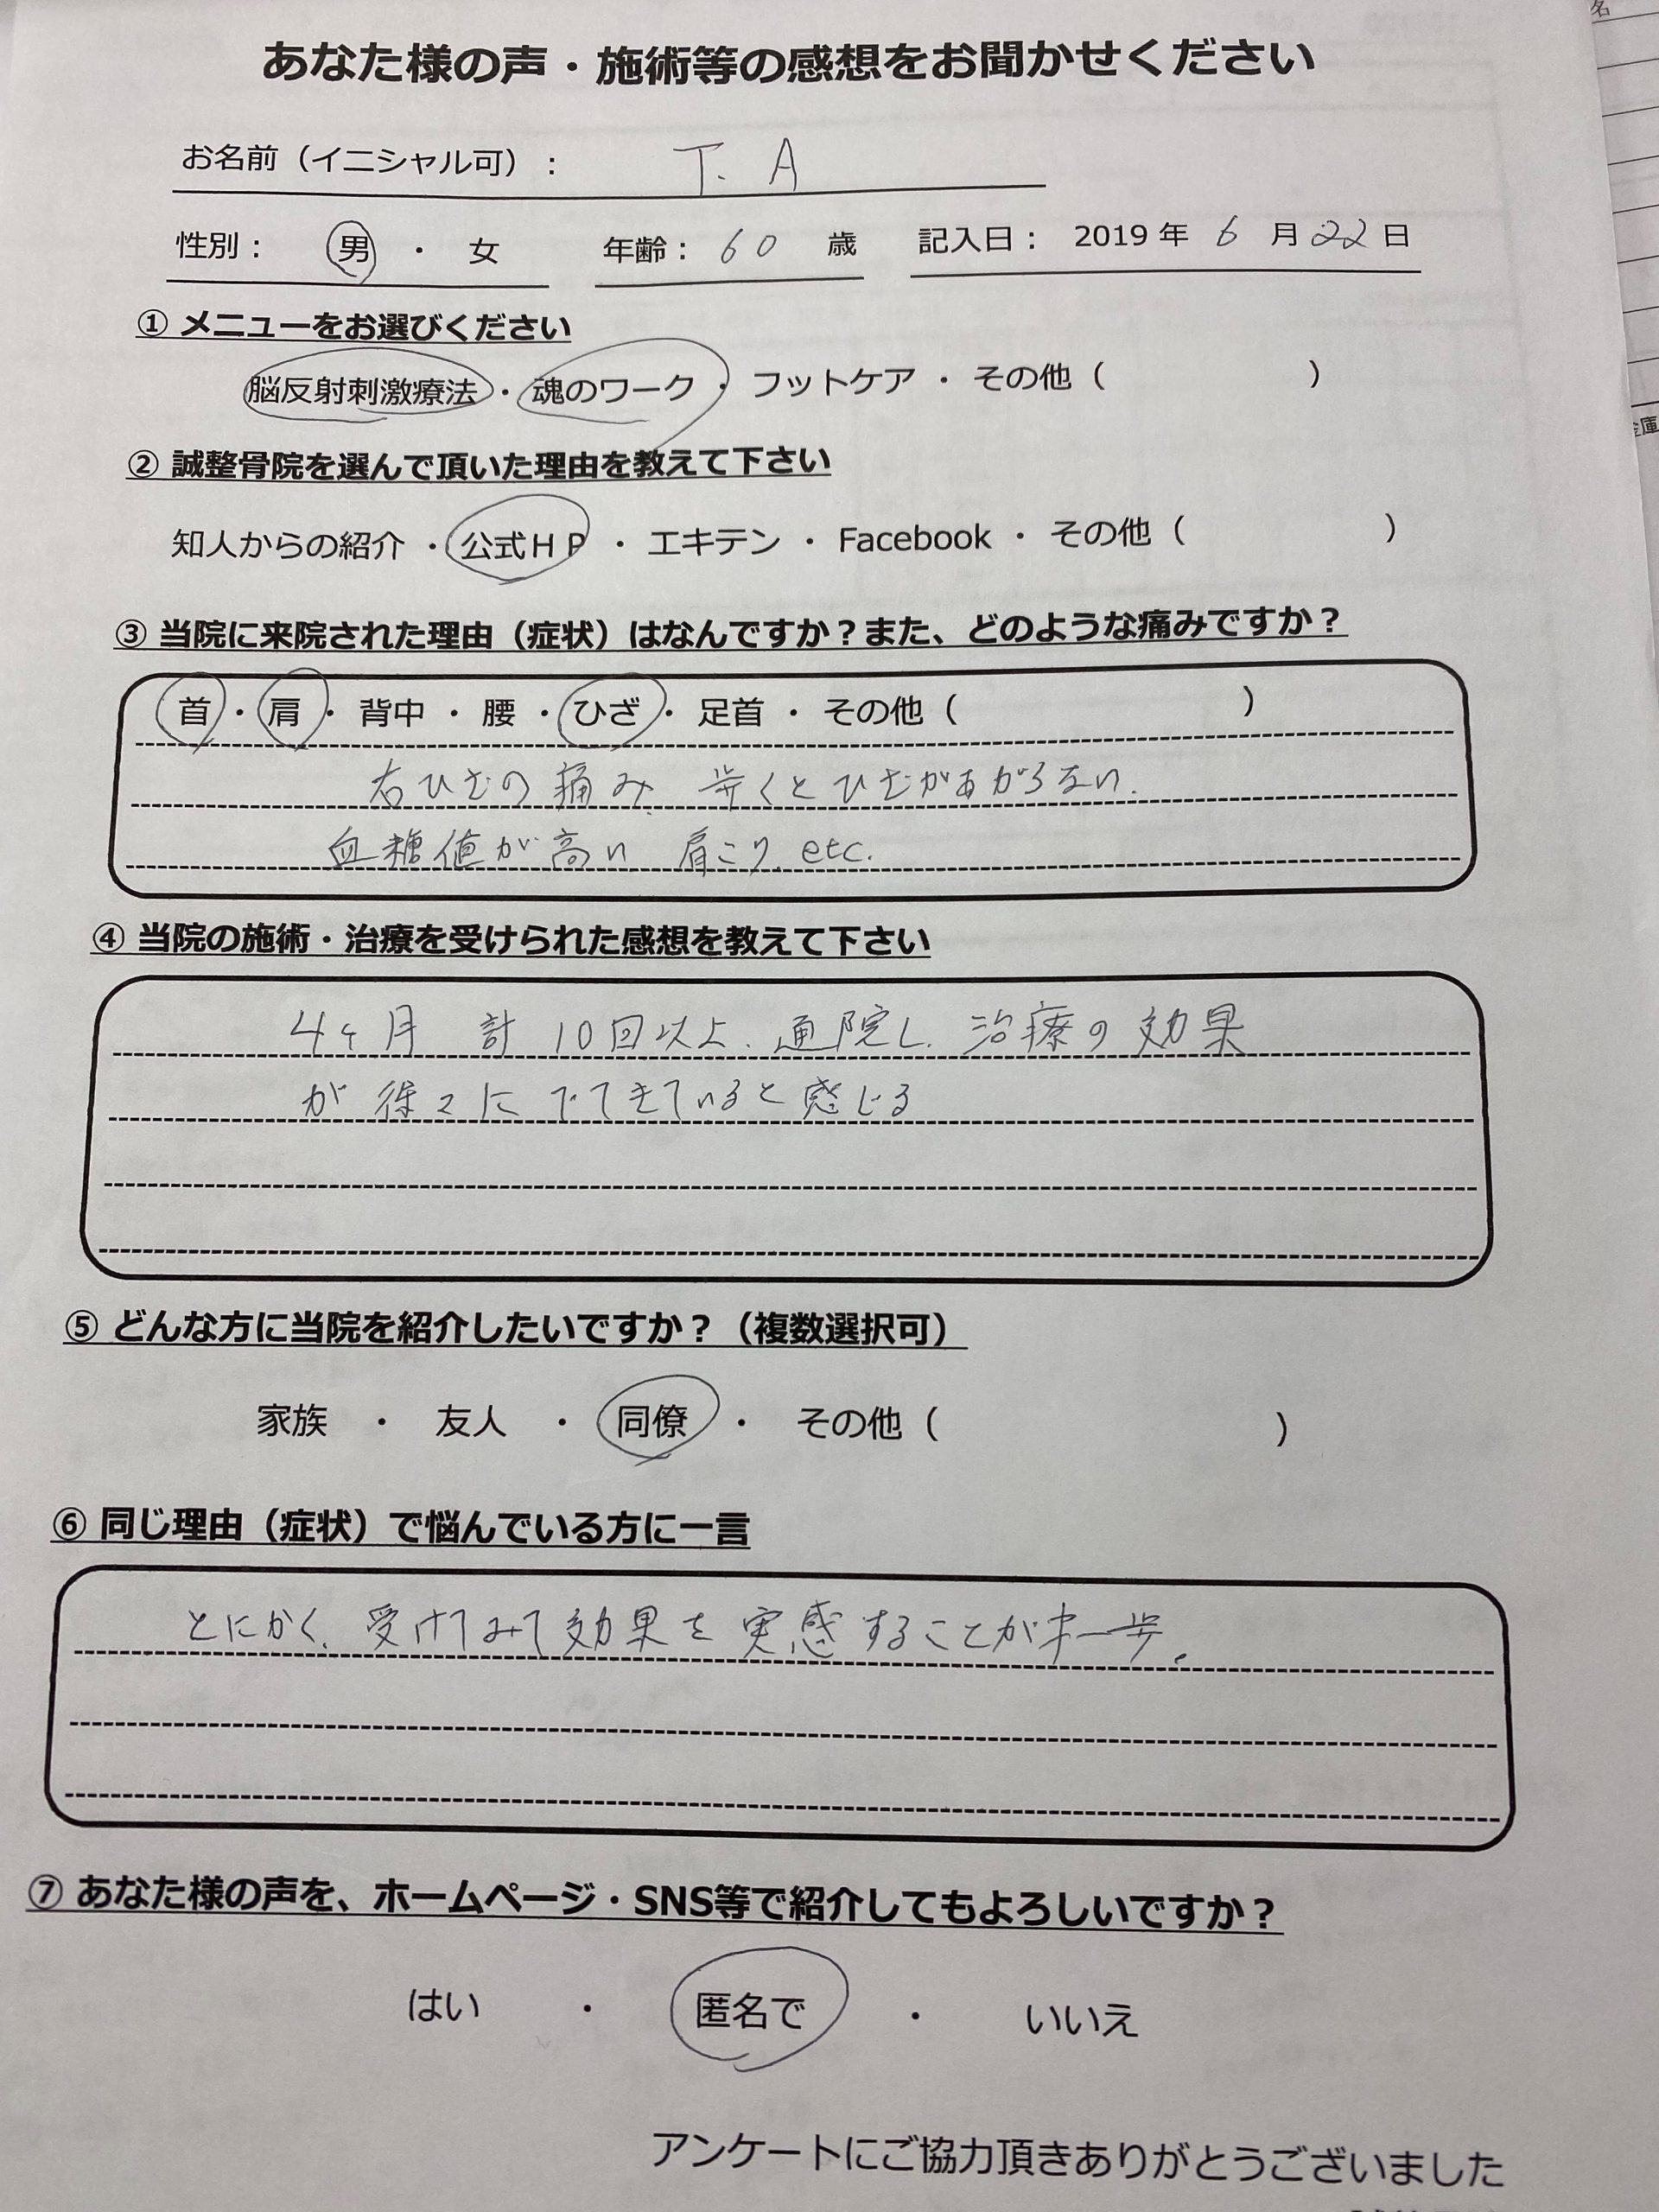 あなた様の声・施術等の感想をお聞かせください
お名前（イニシャル可）： T. A
性別： 男 ・ 女 年齢： 60 歳 記入日： 2019 年 6 月 22 日
① メニューをお選びください
脳反射刺激療法 ・ 魂のワーク ・ フットケア ・ その他（ ）
② 誠整骨院を選んで頂いた理由を教えて下さい
知人からの紹介 ・ 公式ＨＰ ・ エキテン ・ Facebook ・ その他（ ）
③ 当院に来院された理由（症状）はなんですか？また、どのような痛みですか？
首 ・ 肩 ・ 背中 ・ 腰 ・ ひざ ・ 足首 ・ その他（ ）
右ひざの痛み、歩くとひざがあがらない.
血糖値が高い 肩こり etc.
④ 当院の施術・治療を受けられた感想を教えて下さい
4ヶ月 計 10回以上、通院し、治療の効果
が 徐々に でてきていると感じる
⑤ どんな方に当院を紹介したいですか？（複数選択可）
家族 ・ 友人 ・ 同僚 ・ その他（ ）
⑥ 同じ理由（症状）で悩んでいる方に一言
とにかく、受けてみて効果を実感することが才一歩。
⑦ あなた様の声を、ホームページ・SNS等で紹介してもよろしいですか？
はい ・ 匿名で ・ いいえ
アンケートにご協力頂きありがとうございました
名
金庫